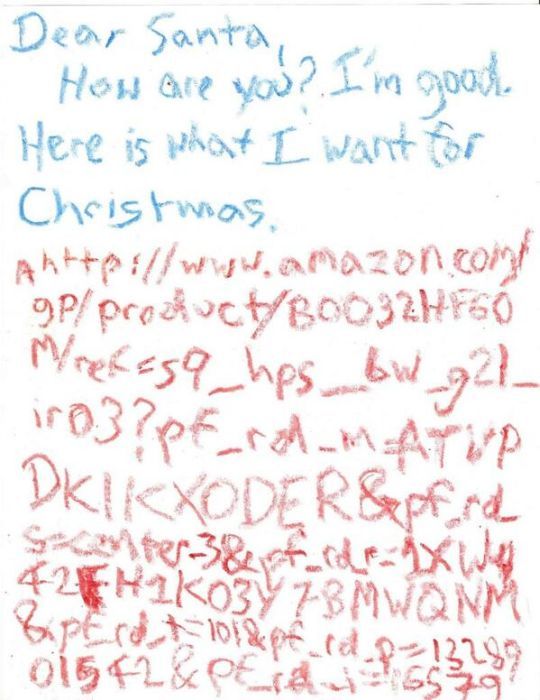 Dear Santa,
How are you? I'm good.
Here is what I want for
Christmas.
A http://www.amazon.com/
gp/product/B0032HF60
M/ref=s9_hps_bw_g21_
ir03?pf_rd_m=ATVP
DKIKX0DER&pf_rd_
s=center-3&pf_rd_r=1XWY
42FH1K03Y7BMWQNM
&pf_rd_t=101&pf_rd_p=13289
01542&pf_rd_i=165